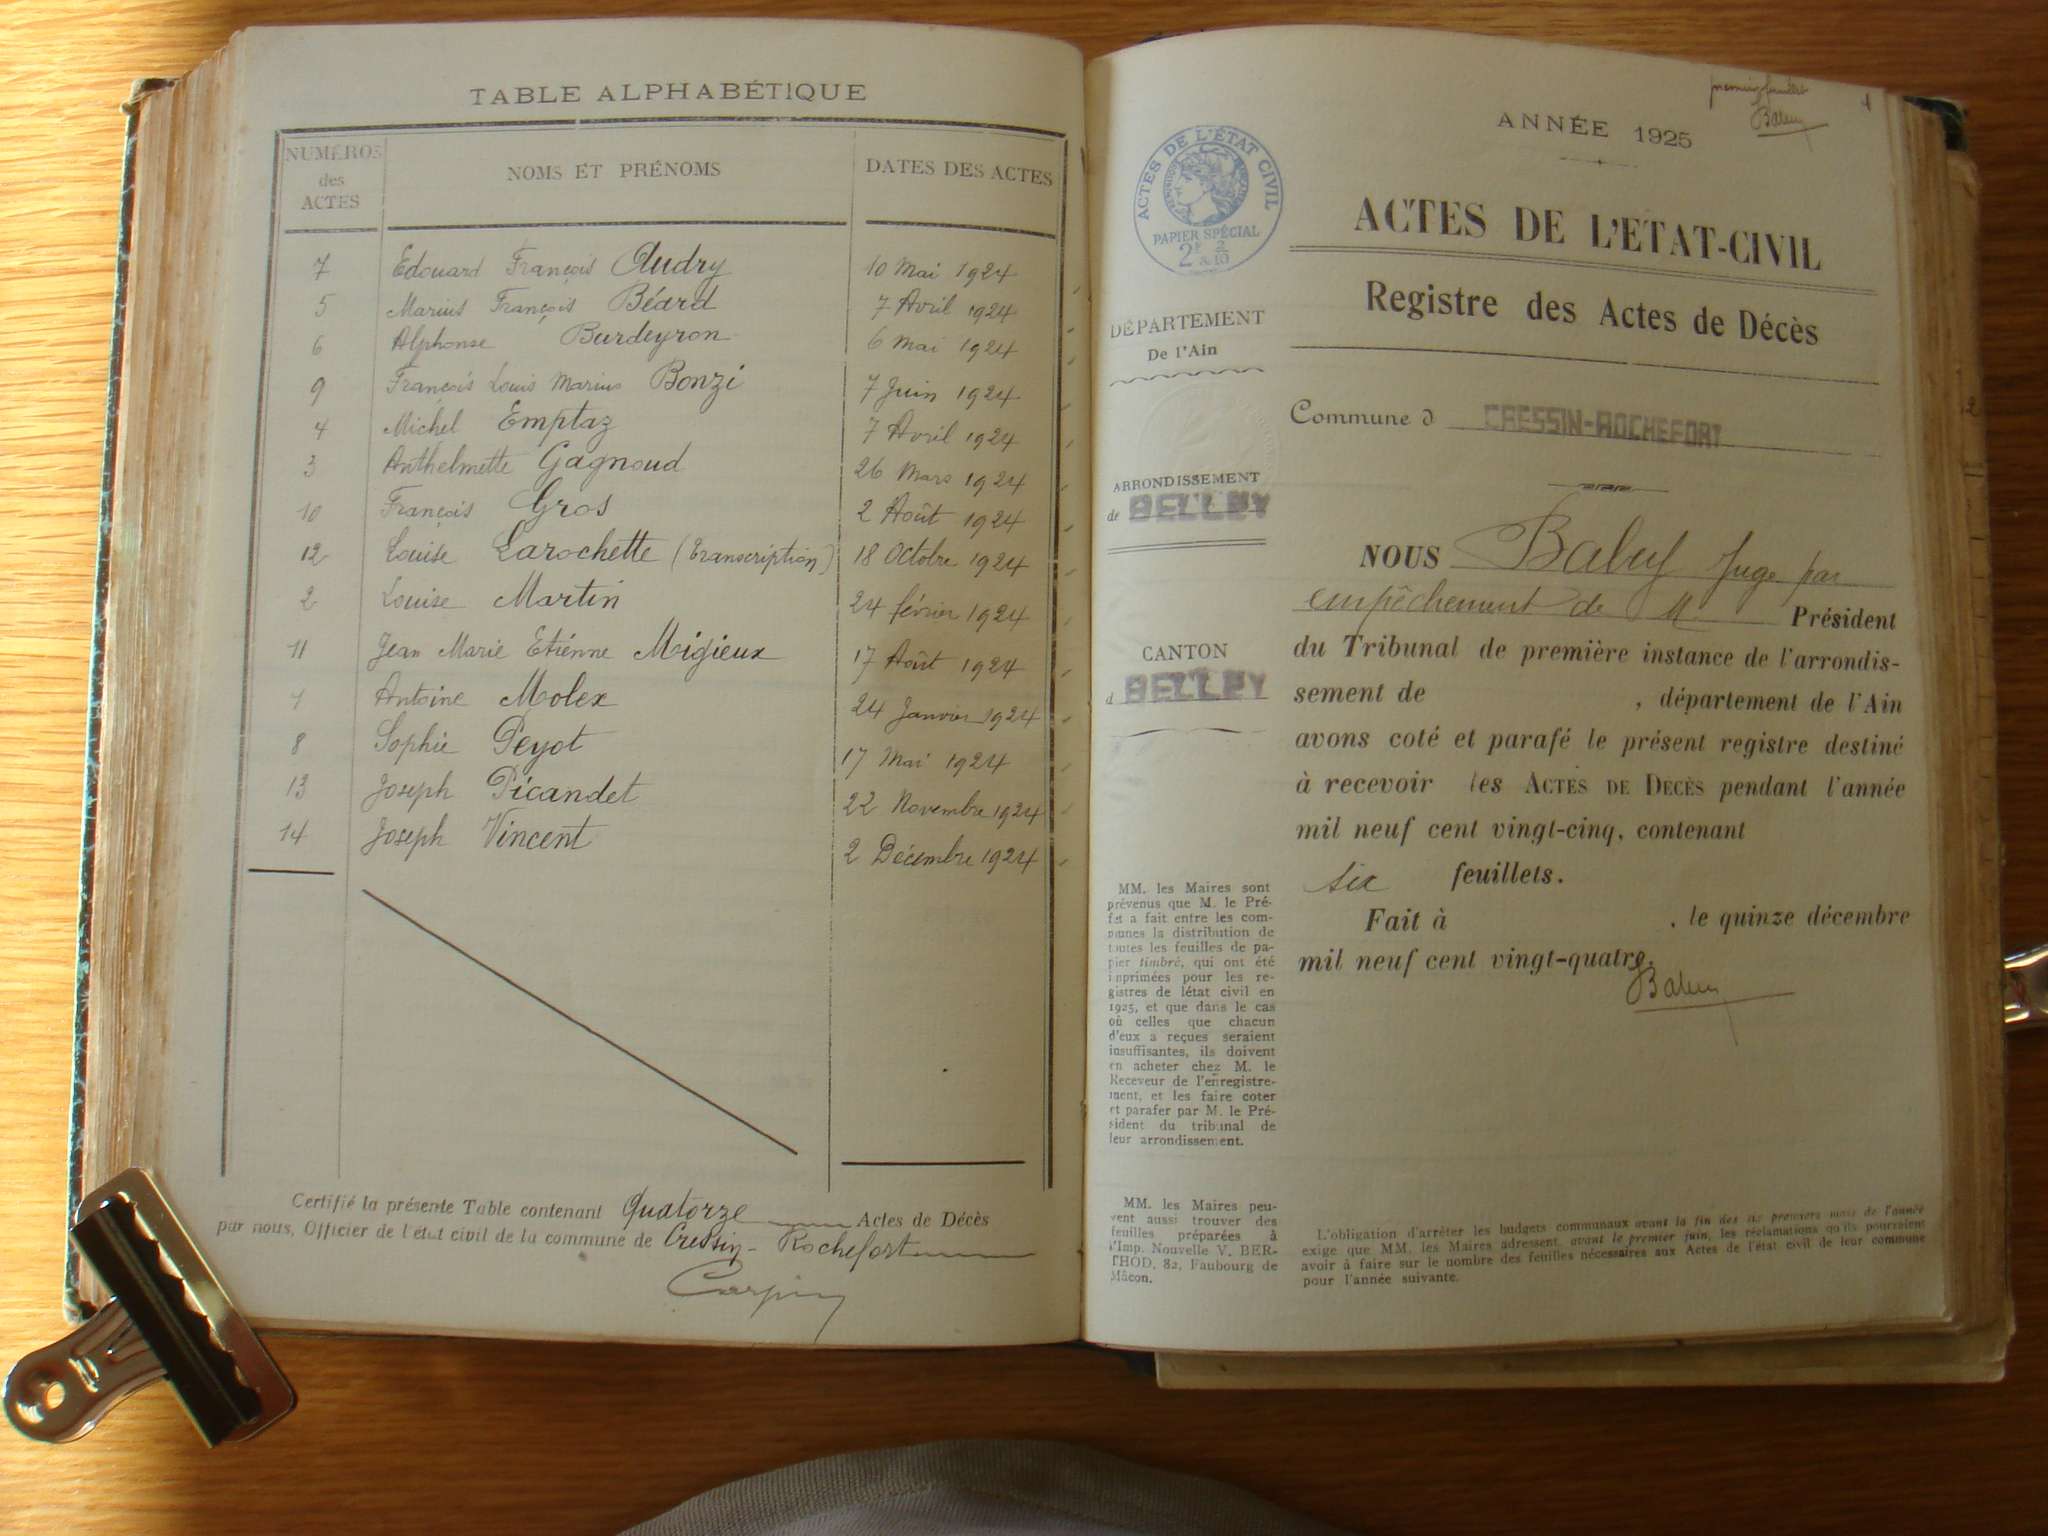 TABLE ALPHABÉTIQUE
NUMÉROS des ACTES NOMS ET PRÉNOMS DATES DES ACTES
7 Edouard François Audry 10 Mai 1924
5 Marius François Béard 7 Avril 1924
6 Alphonse Burdeyron 6 Mai 1924
9 François Louis Marius Bonzi 7 Juin 1924
4 Michel Emptaz 7 Avril 1924
3 Anthelmette Gagnoud 26 Mars 1924
10 François Gros 2 Août 1924
12 Louise Larochette (transcription) 18 Octobre 1924
2 Louise Martin 24 février 1924
11 Jean Marie Etienne Migieux 17 Août 1924
1 Antoine Molex 24 Janvier 1924
8 Sophie Peyot 17 Mai 1924
13 Joseph Picandet 22 Novembre 1924
14 Joseph Vincent 2 Décembre 1924
Certifié la présente Table contenant Quatorze Actes de Décès
par nous, Officier de l'état civil de la commune de Cressin-Rochefort
premier feuillet
1
ANNÉE 1925
ACTES DE L'ÉTAT CIVIL
PAPIER SPÉCIAL
ACTES DE L'ETAT-CIVIL
Registre des Actes de Décès
DÉPARTEMENT
De l'Ain
Commune d CRESSIN-ROCHEFORT
ARRONDISSEMENT
de BELLEY
NOUS Baluf Juge par
empêchement de M. Président
du Tribunal de première instance de l'arrondis-
sement de , département de l'Ain
avons coté et parafé le présent registre destiné
à recevoir les ACTES DE DECÈS pendant l'année
mil neuf cent vingt-cinq, contenant
six feuillets.
Fait à , le quinze décembre
mil neuf cent vingt-quatre.
CANTON
d BELLEY
MM. les Maires sont
prévenus que M. le Pré-
fet a fait entre les com-
munes la distribution de
toutes les feuilles de pa-
pier timbré, qui ont été
imprimées pour les re-
gistres de létat civil en
1925, et que dans le cas
où celles que chacun
d'eux a reçues seraient
insuffisantes, ils doivent
en acheter chez M. le
Receveur de l'enregistre-
ment, et les faire coter
et parafer par M. le Pré-
sident du tribunal de
leur arrondissement.
MM. les Maires peu-
vent aussi trouver des
feuilles préparées à
l'Imp. Nouvelle V. BER-
THOD, 82, Faubourg de
Mâcon.
L'obligation d'arrêter les budgets communaux avant la fin des six premiers mois de l'année
exige que MM. les Maires adressent, avant le premier juin, les réclamations qu'ils pourraient
avoir à faire sur le nombre des feuilles nécessaires aux Actes de l'état civil de leur commune
pour l'année suivante.